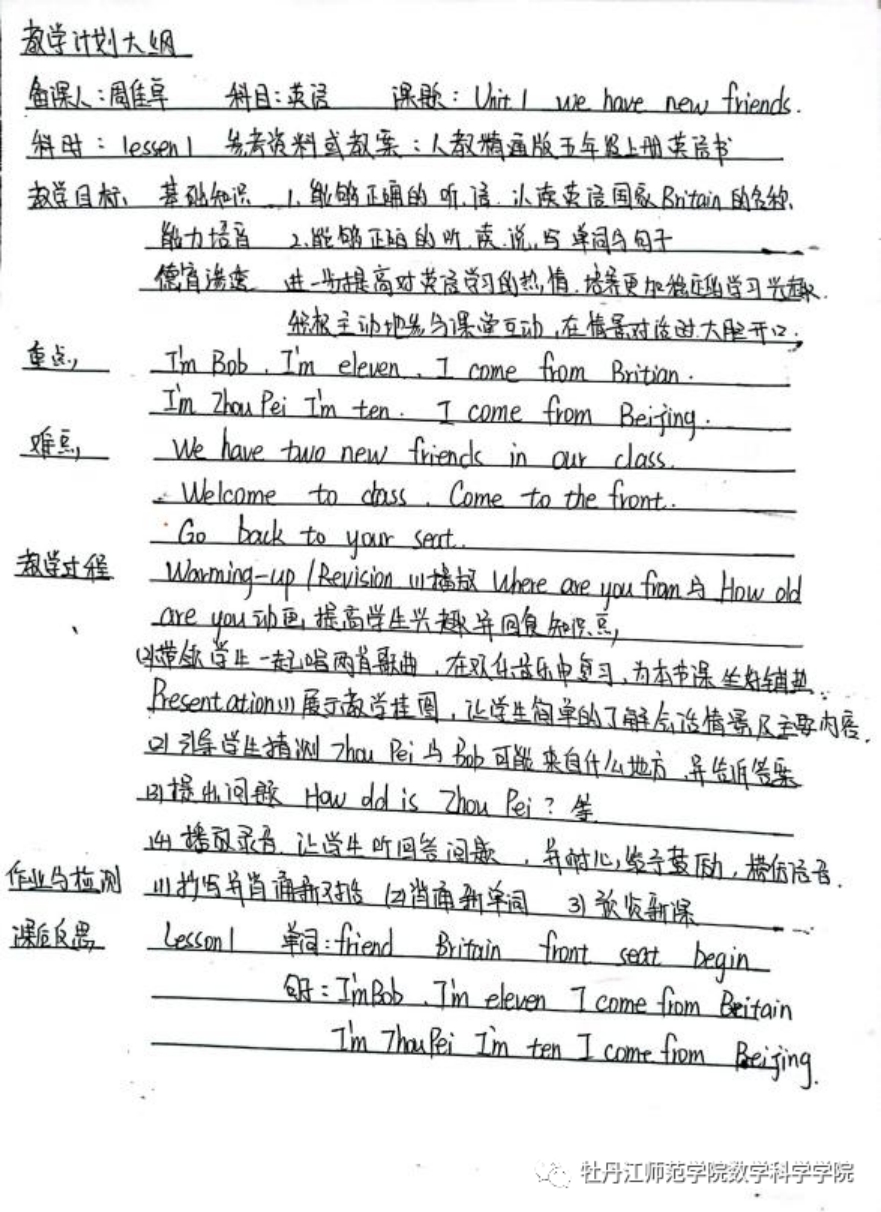 教学计划大纲
备课人:周佳卓 科目:英语 课题: Unit.1 we have new friends.
科时: lessen 1 参考资料或教案:人教精通版五年级上册英语书
教学目标、 基础知识 1.能够正确的听.语.认读英语国家Britain的名称.
能力培育 2.能够正确的听.读.说,写单词与句子
德育渗透 进一步提高对英语学习的热情.培养更加稳定的学习兴趣.
积极主动地参与课堂互动,在情景对话时大胆开口.
重点, I'm Bob. I'm eleven. I come from Britian.
I'm Zhou Pei I'm ten. I come from Beijing.
难点, We have two new friends in our class.
Welcome to class. Come to the front.
Go back to your seat.
教学过程 Warming-up/Revision (1)播放 Where are you from与How old
are you动画,提高学生兴趣并回复知识点,
(2)带领学生一起唱两首歌曲,在欢乐音乐中复习,为本节课坐好铺垫.
Presentation(1)展示教学挂图,让学生简单的了解会话情景及主要内容.
(2)引导学生猜测Zhou Pei与Bob可能来自什么地方 并告诉答案
(3)提出问题 How old is Zhou Pei?等
(4)播放录音,让学生听回答问题,并耐心给予鼓励,模仿语音.
作业与检测 (1)抄写并背诵新对话 (2)背诵新单词 3)预览新课
课后反思 Lesson1 单词:friend Britain front seat begin
句子:I'm Bob. I'm eleven I come from Britain
I'm Zhou Pei I'm ten I come from Beijing.
牡丹江师范学院数学科学学院